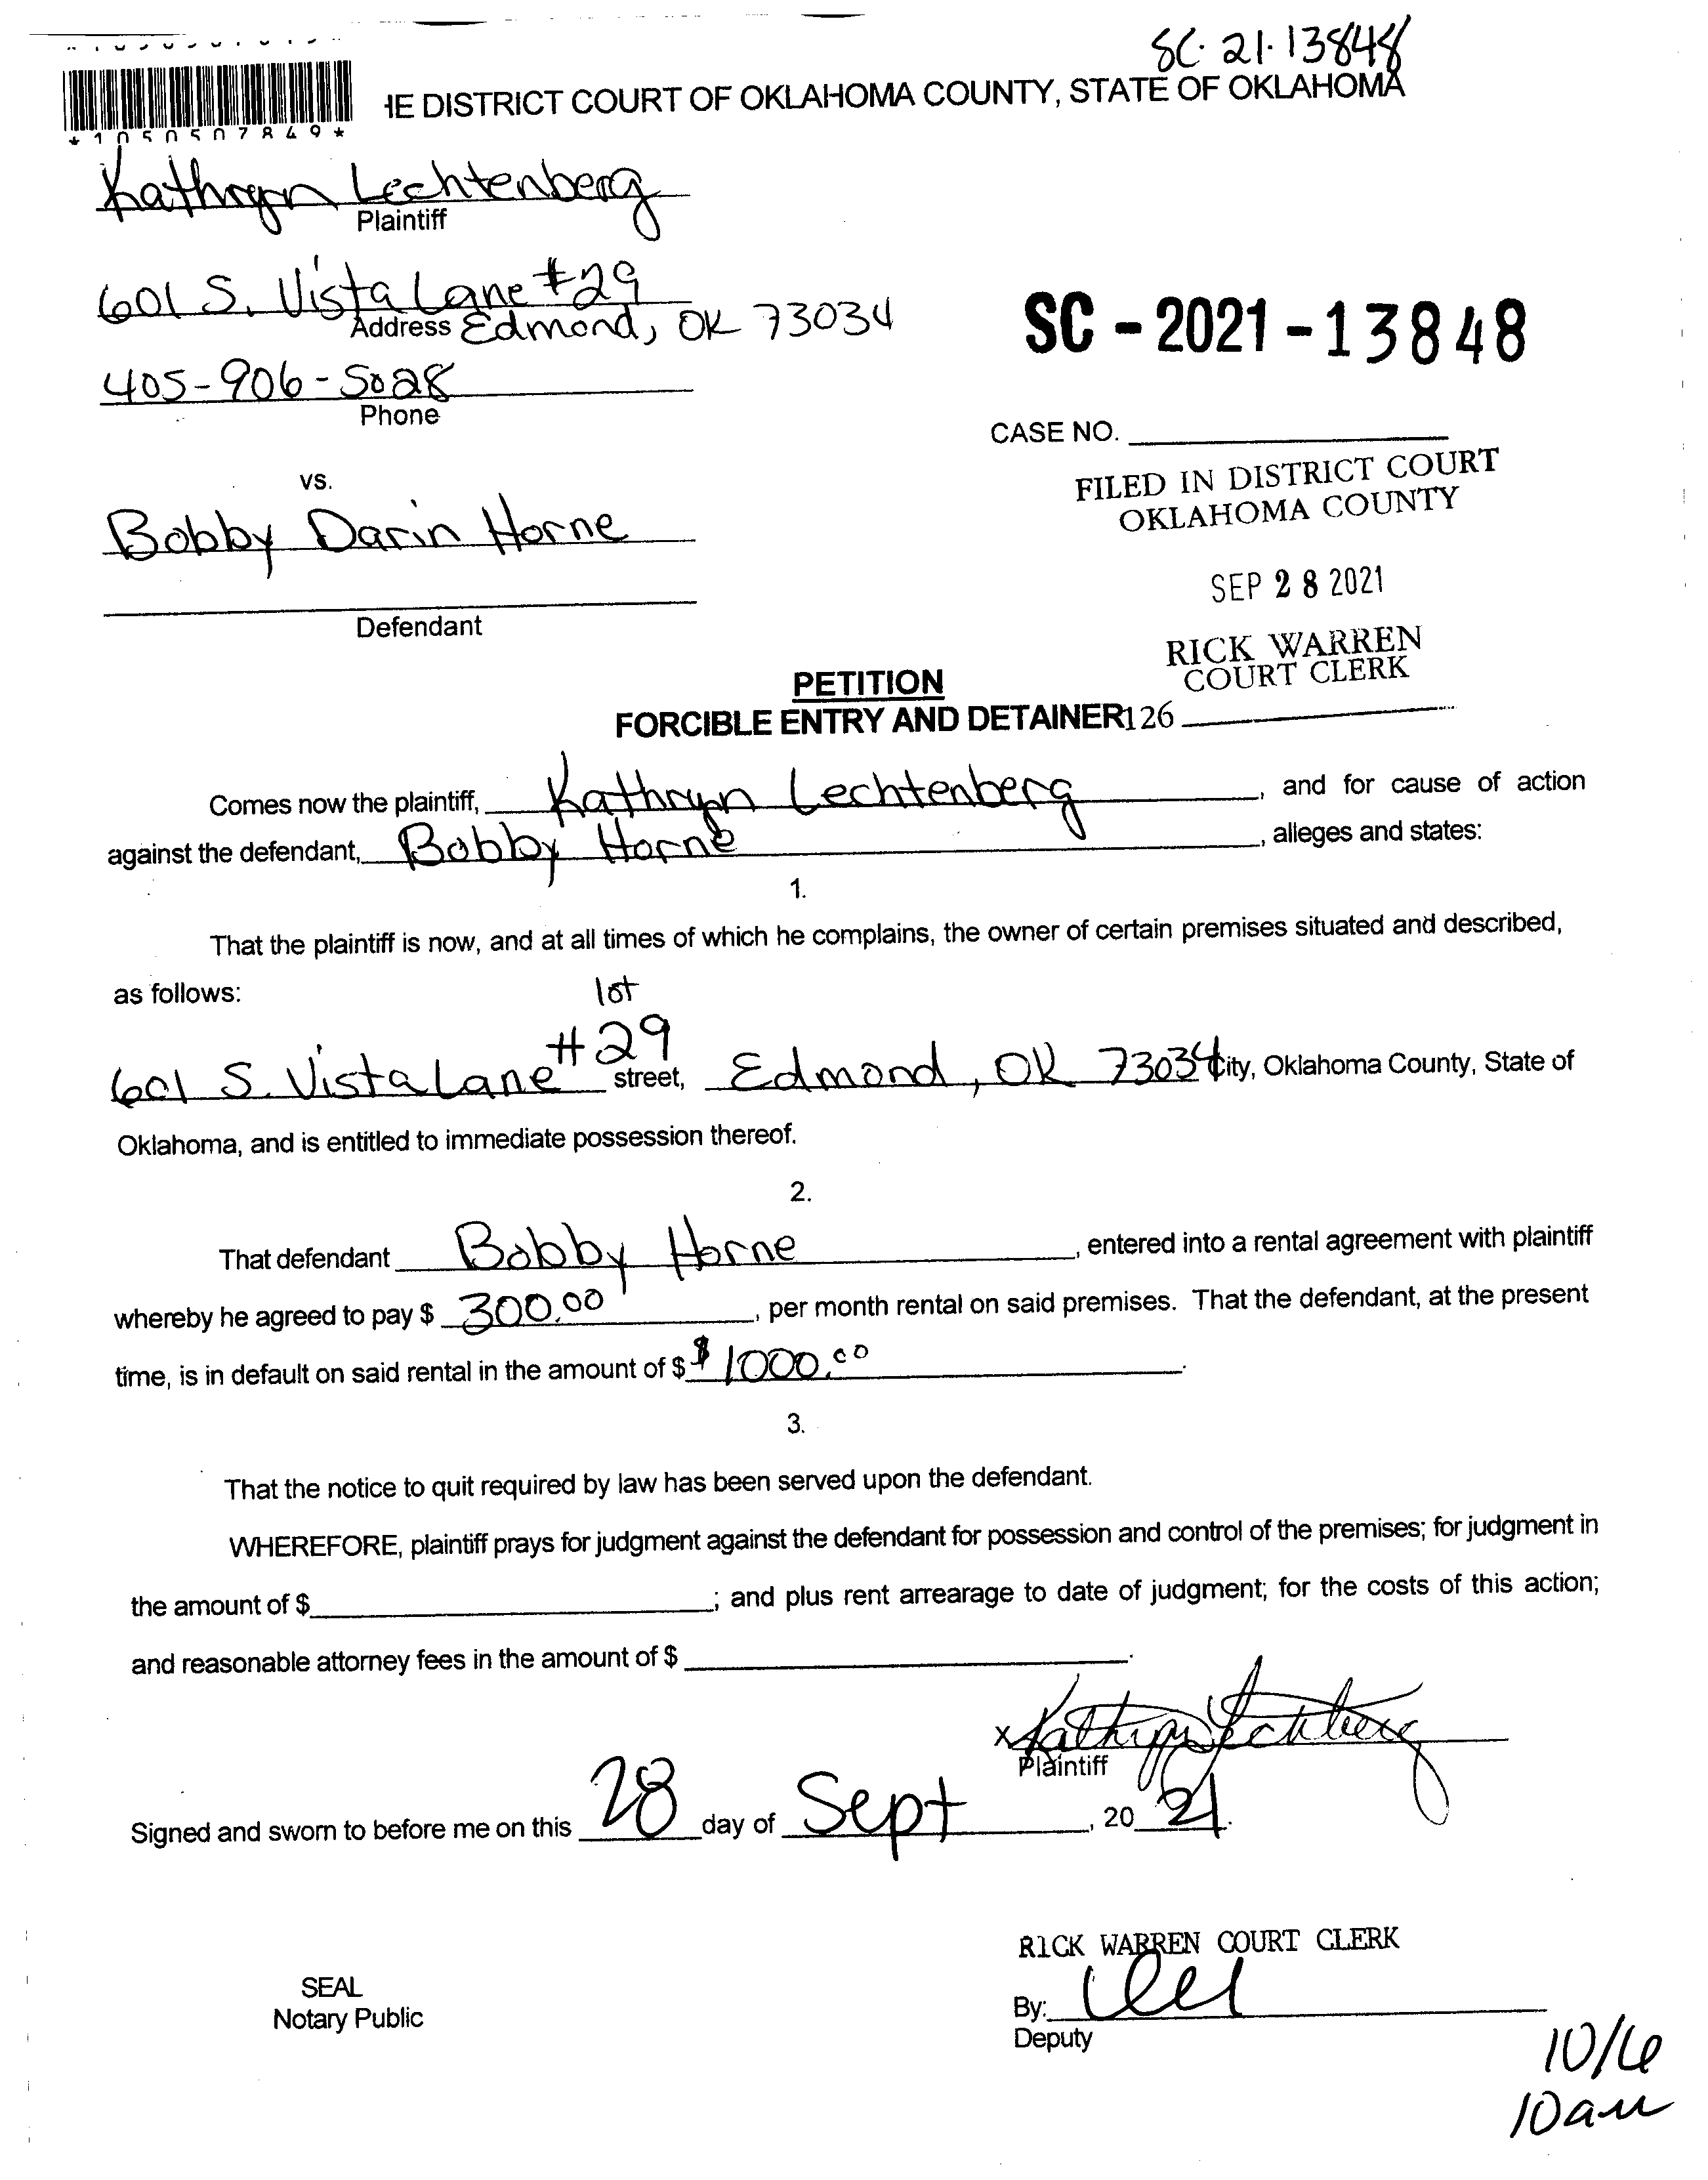 SC-21-13848
HE DISTRICT COURT OF OKLAHOMA COUNTY, STATE OF OKLAHOMA
*1050507849*
Kathryn Lechtenberg
Plaintiff
601 S. Vista Lane #29
Address Edmond, OK 73034
SC-2021-13848
405-906-5028
Phone
CASE NO.
FILED IN DISTRICT COURT
OKLAHOMA COUNTY
vs.
Bobby Darin Horne
SEP 28 2021
Defendant
RICK WARREN
COURT CLERK
PETITION
FORCIBLE ENTRY AND DETAINER 126
Comes now the plaintiff, Kathryn Lechtenberg, and for cause of action
against the defendant, Bobby Horne, alleges and states:
1.
That the plaintiff is now, and at all times of which he complains, the owner of certain premises situated and described,
as follows:
lot
601 S. Vista Lane #29 street, Edmond, OK 73034 City, Oklahoma County, State of
Oklahoma, and is entitled to immediate possession thereof.
2.
That defendant Bobby Horne, entered into a rental agreement with plaintiff
whereby he agreed to pay $ 300.00, per month rental on said premises. That the defendant, at the present
time, is in default on said rental in the amount of $ $1000.00.
3.
That the notice to quit required by law has been served upon the defendant.
WHEREFORE, plaintiff prays for judgment against the defendant for possession and control of the premises; for judgment in
the amount of $; and plus rent arrearage to date of judgment; for the costs of this action;
and reasonable attorney fees in the amount of $.
x Kathryn Lechtenberg
Plaintiff
Signed and sworn to before me on this 28 day of Sept, 20 21.
RICK WARREN COURT CLERK
SEAL
Notary Public
By:
Deputy
10/6
10am